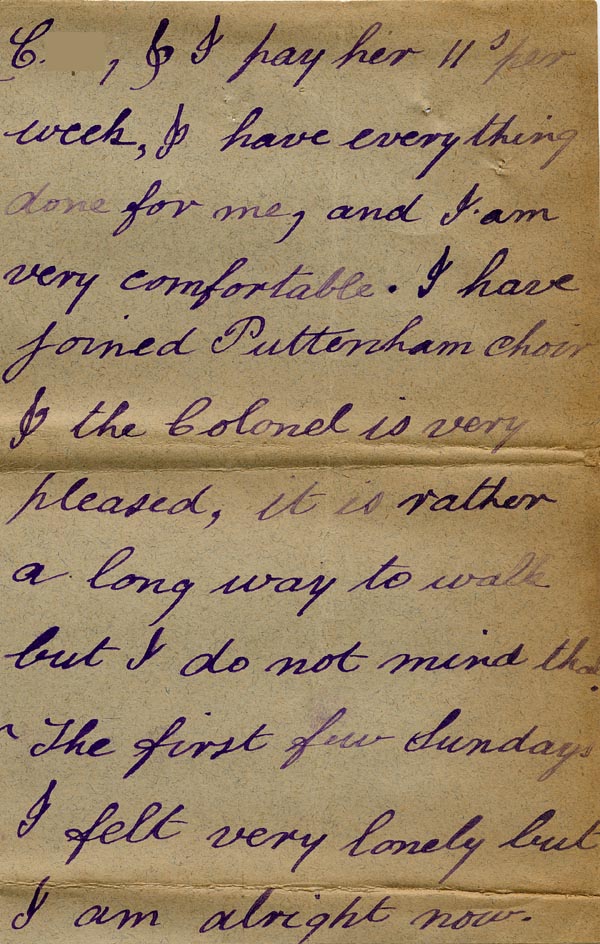 C. , & I pay her 11s per
week, & have everything
done for me, and I am
very comfortable. I have
joined Puttenham choir
& the Colonel is very
pleased, it is rather
a long way to walk
but I do not mind that.
The first few Sundays
I felt very lonely but
I am alright now.